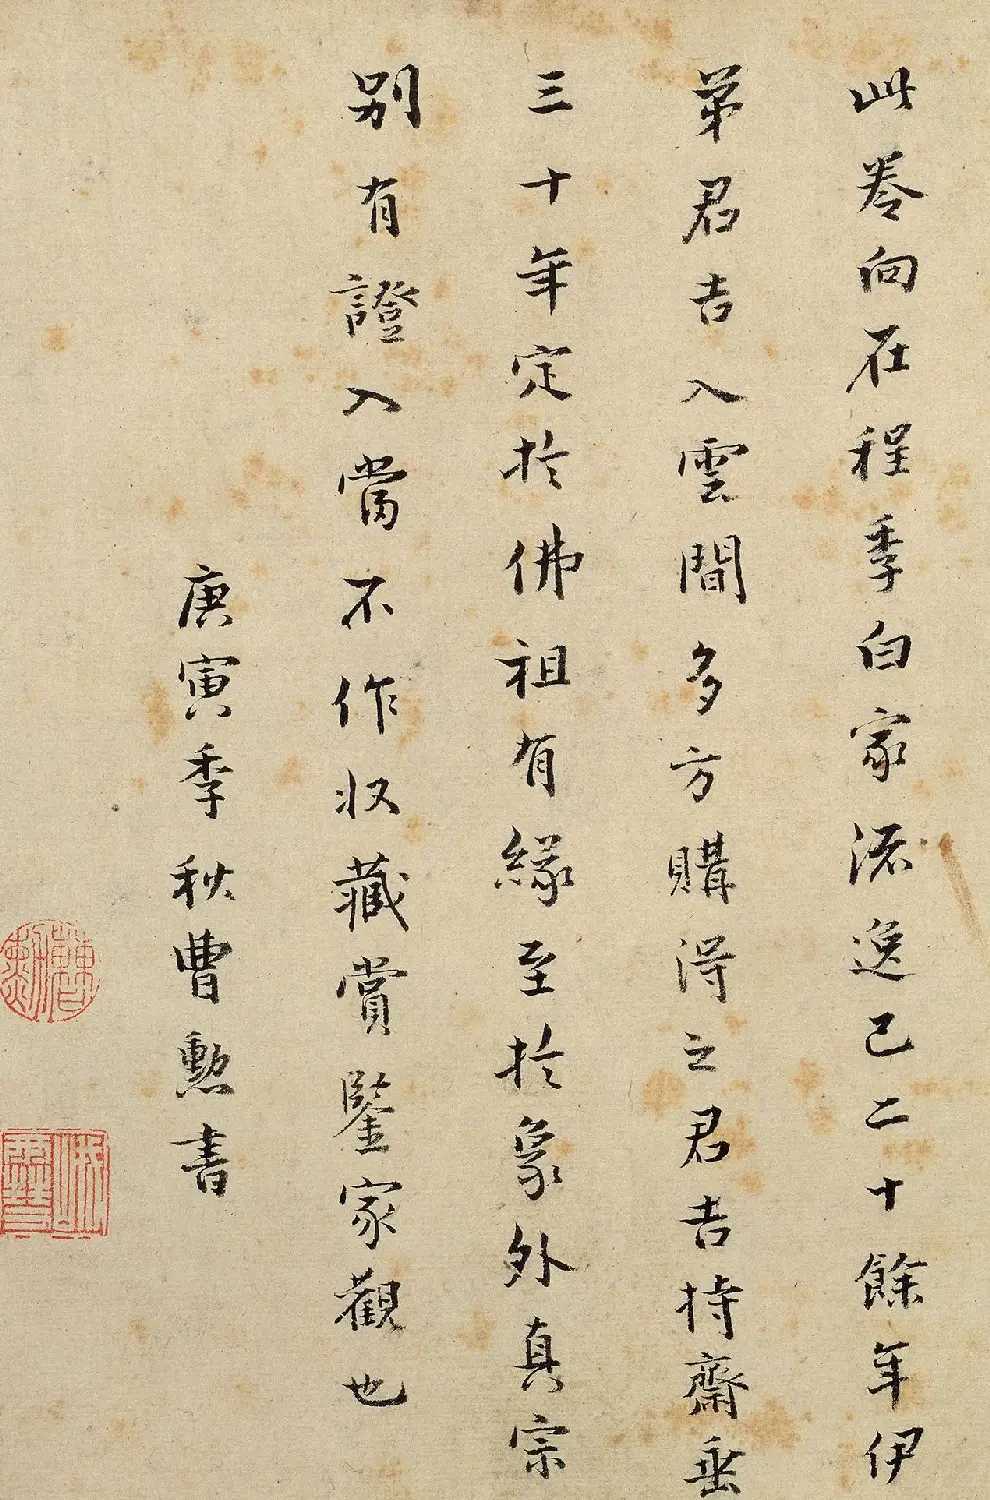 此卷向在程季白家流逸已二十餘年伊
弟君吉入雲間多方購得之君吉持齋垂
三十年定於佛祖有緣至於象外真宗
別有證入當不作收藏賞鑒家觀也
庚寅季秋曹勲書